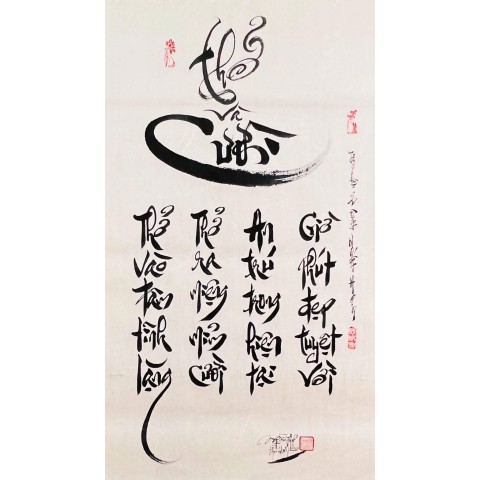 Thở
và
Cười
Thở vào tâm tĩnh lặng
Thở ra miệng mỉm cười
An trú trong hiện tại
Giờ phút đẹp tuyệt vời